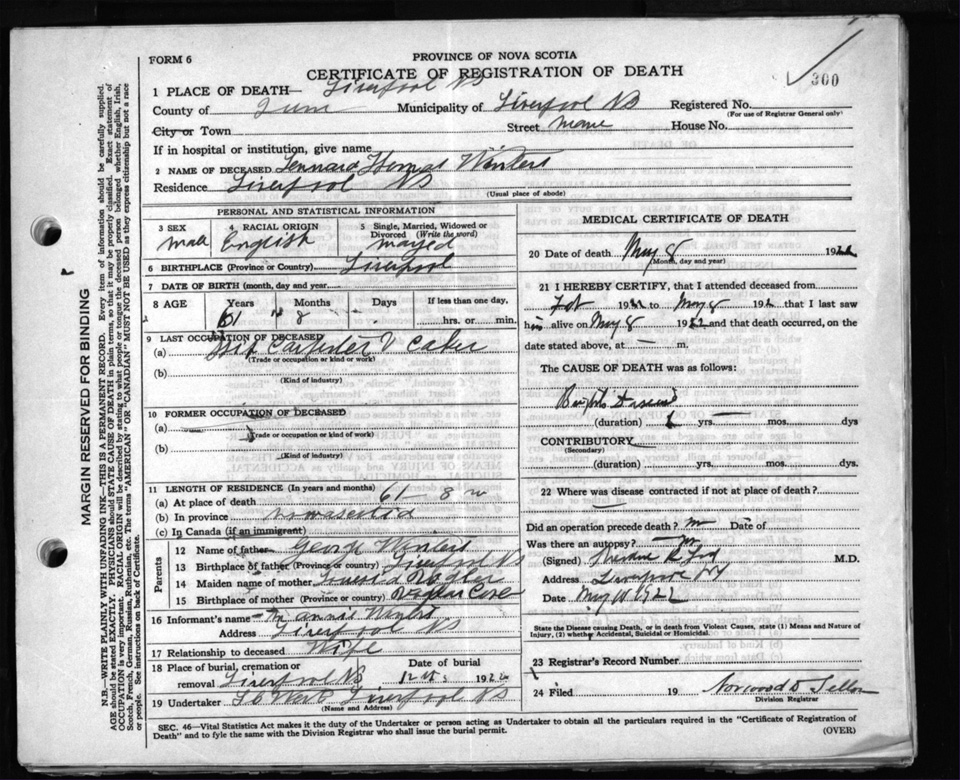 FORM 6
PROVINCE OF NOVA SCOTIA
CERTIFICATE OF REGISTRATION OF DEATH
300
1 PLACE OF DEATH— Liverpool NS
County of Municipality of Liverpool NS Registered No.
(For use of Registrar General only)
City or Town Street House No.
If in hospital or institution, give name
2 NAME OF DECEASED Lennard Thomas Winters
Residence Liverpool NS
(Usual place of abode)
PERSONAL AND STATISTICAL INFORMATION
3 SEX 4 RACIAL ORIGIN 5 Single, Married, Widowed or Divorced (Write the word)
Male English
6 BIRTHPLACE (Province or Country) Liverpool
7 DATE OF BIRTH (month, day and year)
8 AGE Years Months Days If less than one day,
61 8 hrs. or min.
9 LAST OCCUPATION OF DECEASED
(a) Ship
(Trade or occupation or kind or work)
(b)
(Kind of industry)
10 FORMER OCCUPATION OF DECEASED
(a)
(Trade or occupation or kind of work)
(b)
(Kind of industry)
11 LENGTH OF RESIDENCE (In years and months)
(a) At place of death 61 8
(b) In province
(c) In Canada (if an immigrant)
Parents
12 Name of father George Winters
13 Birthplace of father (Province or country) Liverpool NS
14 Maiden name of mother
15 Birthplace of mother (Province or country) Cove
16 Informant's name Annie
Address Liverpool NS
17 Relationship to deceased Wife
18 Place of burial, cremation or removal Liverpool NS Date of burial 1922
19 Undertaker Liverpool NS
(Name and Address)
MEDICAL CERTIFICATE OF DEATH
20 Date of death May 8 1922
(Month, day and year)
21 I HEREBY CERTIFY, that I attended deceased from
1922 to May 8 192 that I last saw
him alive on May 8 1922 and that death occurred, on
the date stated above, at — m.
The CAUSE OF DEATH was as follows:
(duration) yrs. mos. dys
CONTRIBUTORY
(Secondary)
(duration) yrs. mos. dys.
22 Where was disease contracted if not at place of death?
Did an operation precede death? Date of
Was there an autopsy?
(Signed) M.D.
Address Liverpool NS
Date May 10 1922
State the Disease causing Death, or in death from Violent Causes, state (1) Means and Nature of
Injury, (2) whether Accidental, Suicidal or Homicidal.
23 Registrar's Record Number
24 Filed 19
Division Registrar
SEC. 46—Vital Statistics Act makes it the duty of the Undertaker or person acting as Undertaker to obtain all the particulars required in the "Certificate of Registration of
Death" and to fyle the same with the Division Registrar who shall issue the burial permit.
(OVER)
MARGIN RESERVED FOR BINDING
N.B.—WRITE PLAINLY WITH UNFADING INK—THIS IS A PERMANENT RECORD. Every item of information should be carefully supplied.
AGE should be stated EXACTLY. PHYSICIANS should STATE CAUSE OF DEATH in plain terms, so that it may be properly classified. Exact statement of
OCCUPATION is very important. RACIAL ORIGIN will be described by stating to what people or tongue the deceased person belonged whether English, Irish,
Scotch, French, German, Russian, Ruthenian, etc. The terms "AMERICAN" OR "CANADIAN" MUST NOT BE USED as they express citizenship but not a race
or people. See instructions on back of Certificate.